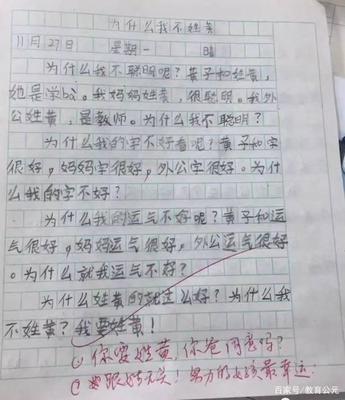 为什么我不姓黄
11月27日 星期一 晴
为什么我不聪明呢？黄子和姓黄，
她是学bà。我妈妈姓黄，很聪明。我外
公姓黄，是教师。为什么我不聪明？
为什么我的字不好看呢？黄子和字
很好，妈妈字很好，外公字很好。为什
么我的字不好？
为什么我的运气不好呢？黄子和运
气很好，妈妈运气很好，外公运气很好
。为什么就我运气不好？
为什么姓黄的就这么好？为什么我
不姓黄？我要姓黄！
① 你要姓黄，你爸同意吗？
② 跟姓无关！努力的女孩最幸运
百家号/教育公元